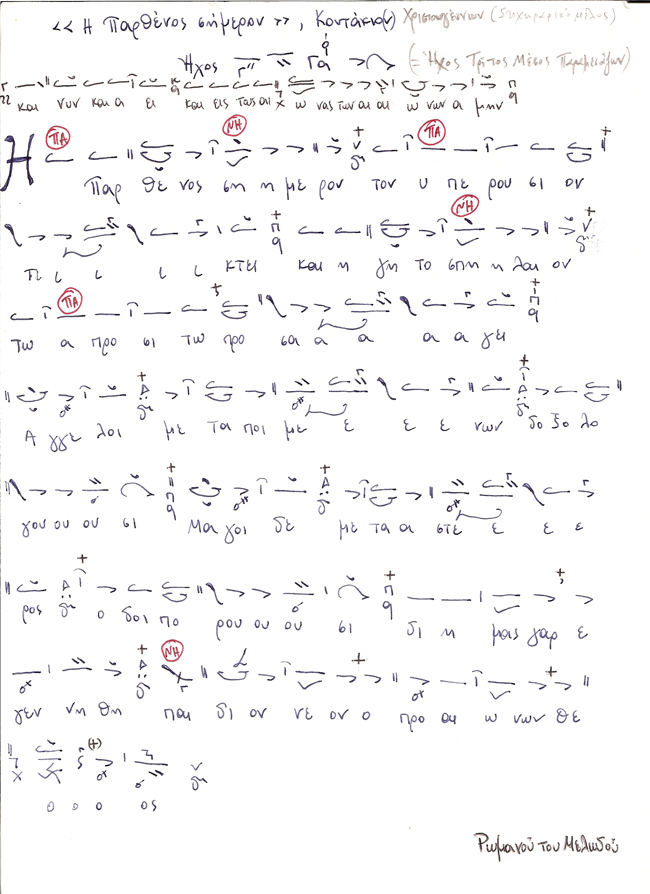 << Η Παρθένος σήμερον >>, Κοντάκιο(ν) Χριστουγέννων (Στιχηραρικό μέλος)
Ήχος Γα (= Ήχος Τρίτος Μέσος
και νυν και α ει και εις τους αι ω νας των αι αι ω νων α μην
ΠΑ ΝΗ ΠΑ
Η Παρ θε νος ση η με ρον τον υ πε ρου σι ον
ΝΗ
τι ι ι ι ι κτει και η γη το σπη η λαι ον
ΠΑ
τω α προ σι τω προ σα α α α α γει
Α γγε λοι με τα ποι με ε ε ε νων δο ξο λο
γου ου ου σι Μα γοι δε με τα α στε ε ε ε
ρος ο δοι πο ρου ου ου σι δι η μας γαρ ε
ΝΗ
γεν νη θη παι δι ον νε ον ο προ αι ω νων Θε
ο ο ο ος
Ρωμανού του Μελωδού